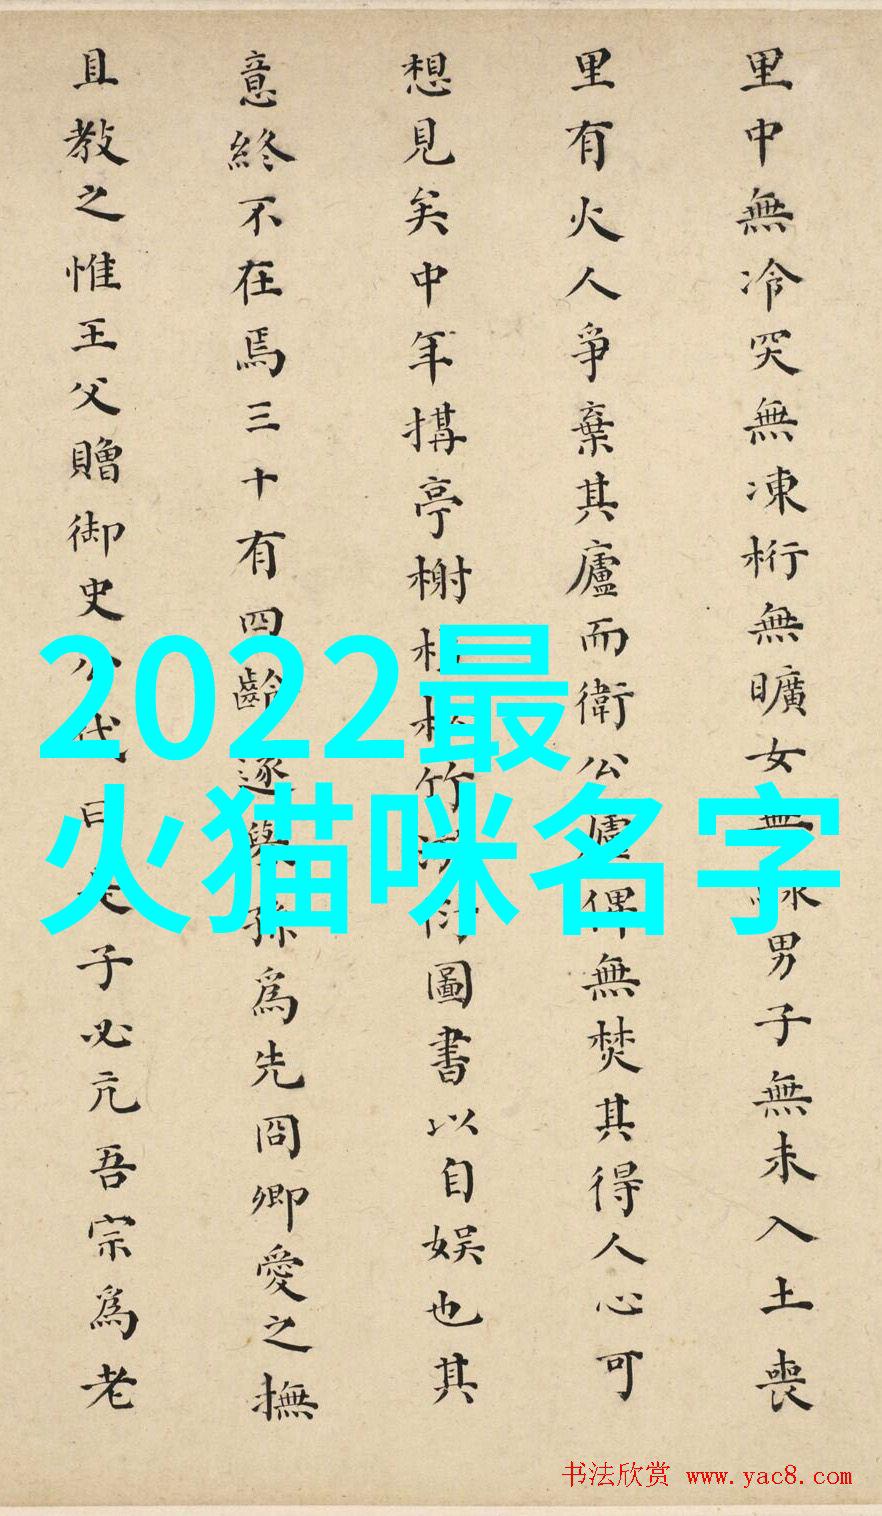 里中無冷突無凍桁無曠女無男子無未入土喪
里有火人爭棄其廬而衛公廬俾無焚其得人心可
想見矣中年搆亭榭松竹圖書以自娛也其
意終不在焉三十有四齡逐與孫爲先冏卿愛之撫
且教之惟王父贈御史公代曰是子必亢吾宗爲老
2022最
火猫咪名字
书法欣赏 www.yac8.com